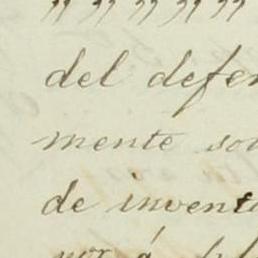 " " " " "
del defen
mente so
de invent
por á